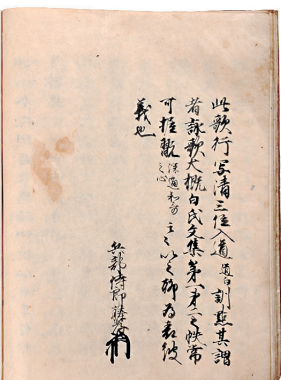 此歌行写清三位入道道白訓点其謂
者詠歌大概白氏文集第一第二之帙常
可握翫深通和哥之心云々以之聊為表彼
義也
兵部侍郎藤